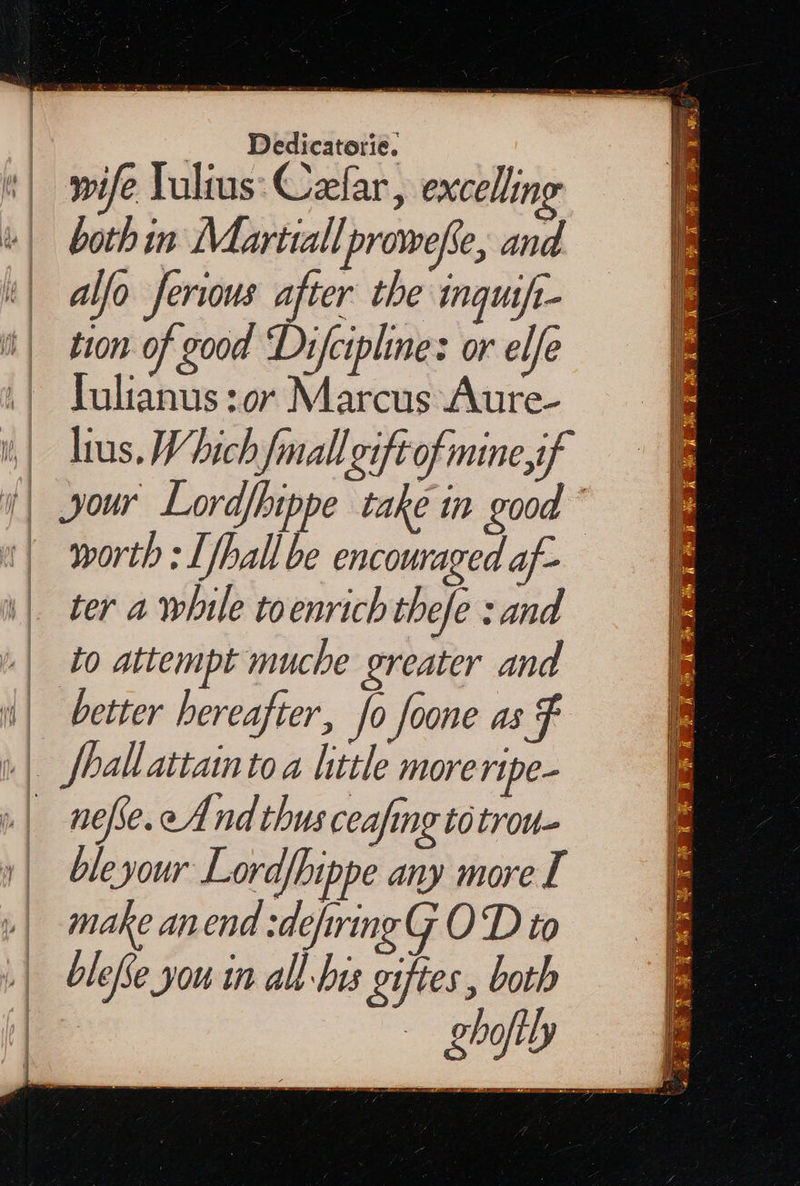 Dedicatorie.
wiſe Iulius Cæſar, excelling
both in Martiall proweſſe, and
alſo ſerious after the inquiſi-
tion of good Diſcipline: or elſe
Iulianus: or Marcus Aure-
lius. Which ſmall gift of mine, if
your Lordſhippe take in good
worth: I ſhall be encouraged af-
ter a while to enrich theſe: and
to attempt muche greater and
better hereafter, ſo ſoone as I
ſhall attain to a little more ripe-
neſſe. And thus ceaſing to trou-
ble your Lordſhippe any more I
make an end: deſiring GOD to
bleſſe you in all his giftes, both
ghoſtly